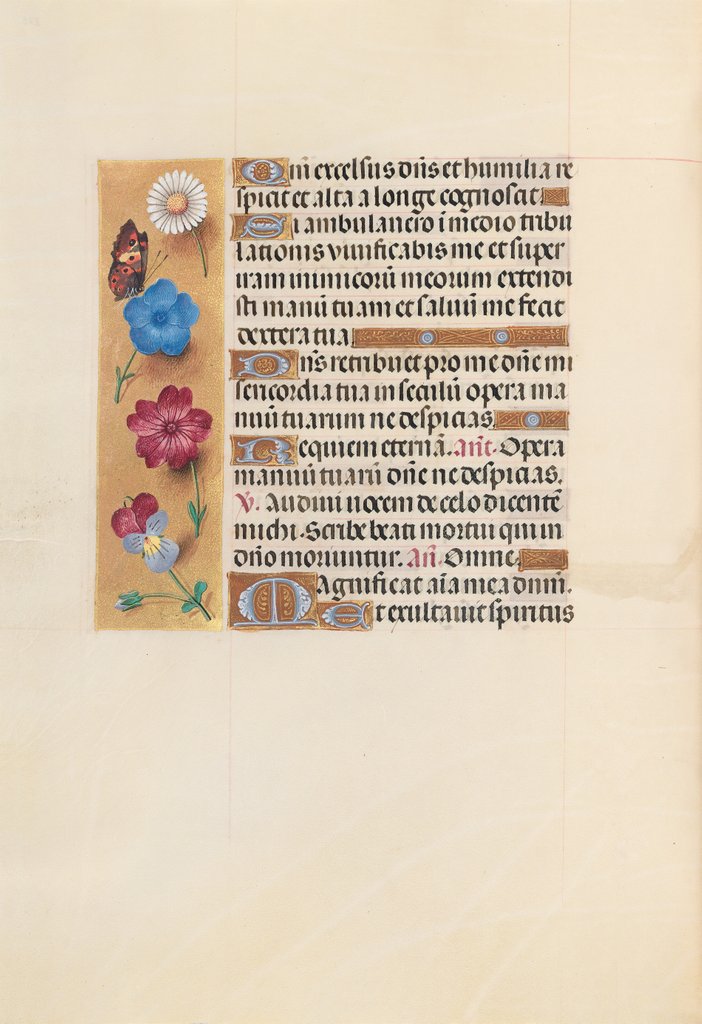 Qm̄ excelsus dn̄s et humilia re
spicit et alta a longe cognoscit
Si ambulauero ī medio tribu
lationis viuificabis me et super
iram inimicorū meorum extendi
sti manū tuam et saluū me fecit
dextera tua
Dn̄s retribuet pro me dn̄e mi
sericordia tua in seculū opera ma
nuū tuarum ne despicias
Requiem eternā. Ant̄. Opera
manuū tuarū dn̄e ne despicias.
V̄. Audiui uocem de celo dicentē
michi. Scribe beati mortui qui in
dn̄o moriuntur. An̄. Omne
Magnificat aīa mea dnm̄.
Et exultauit spiritus